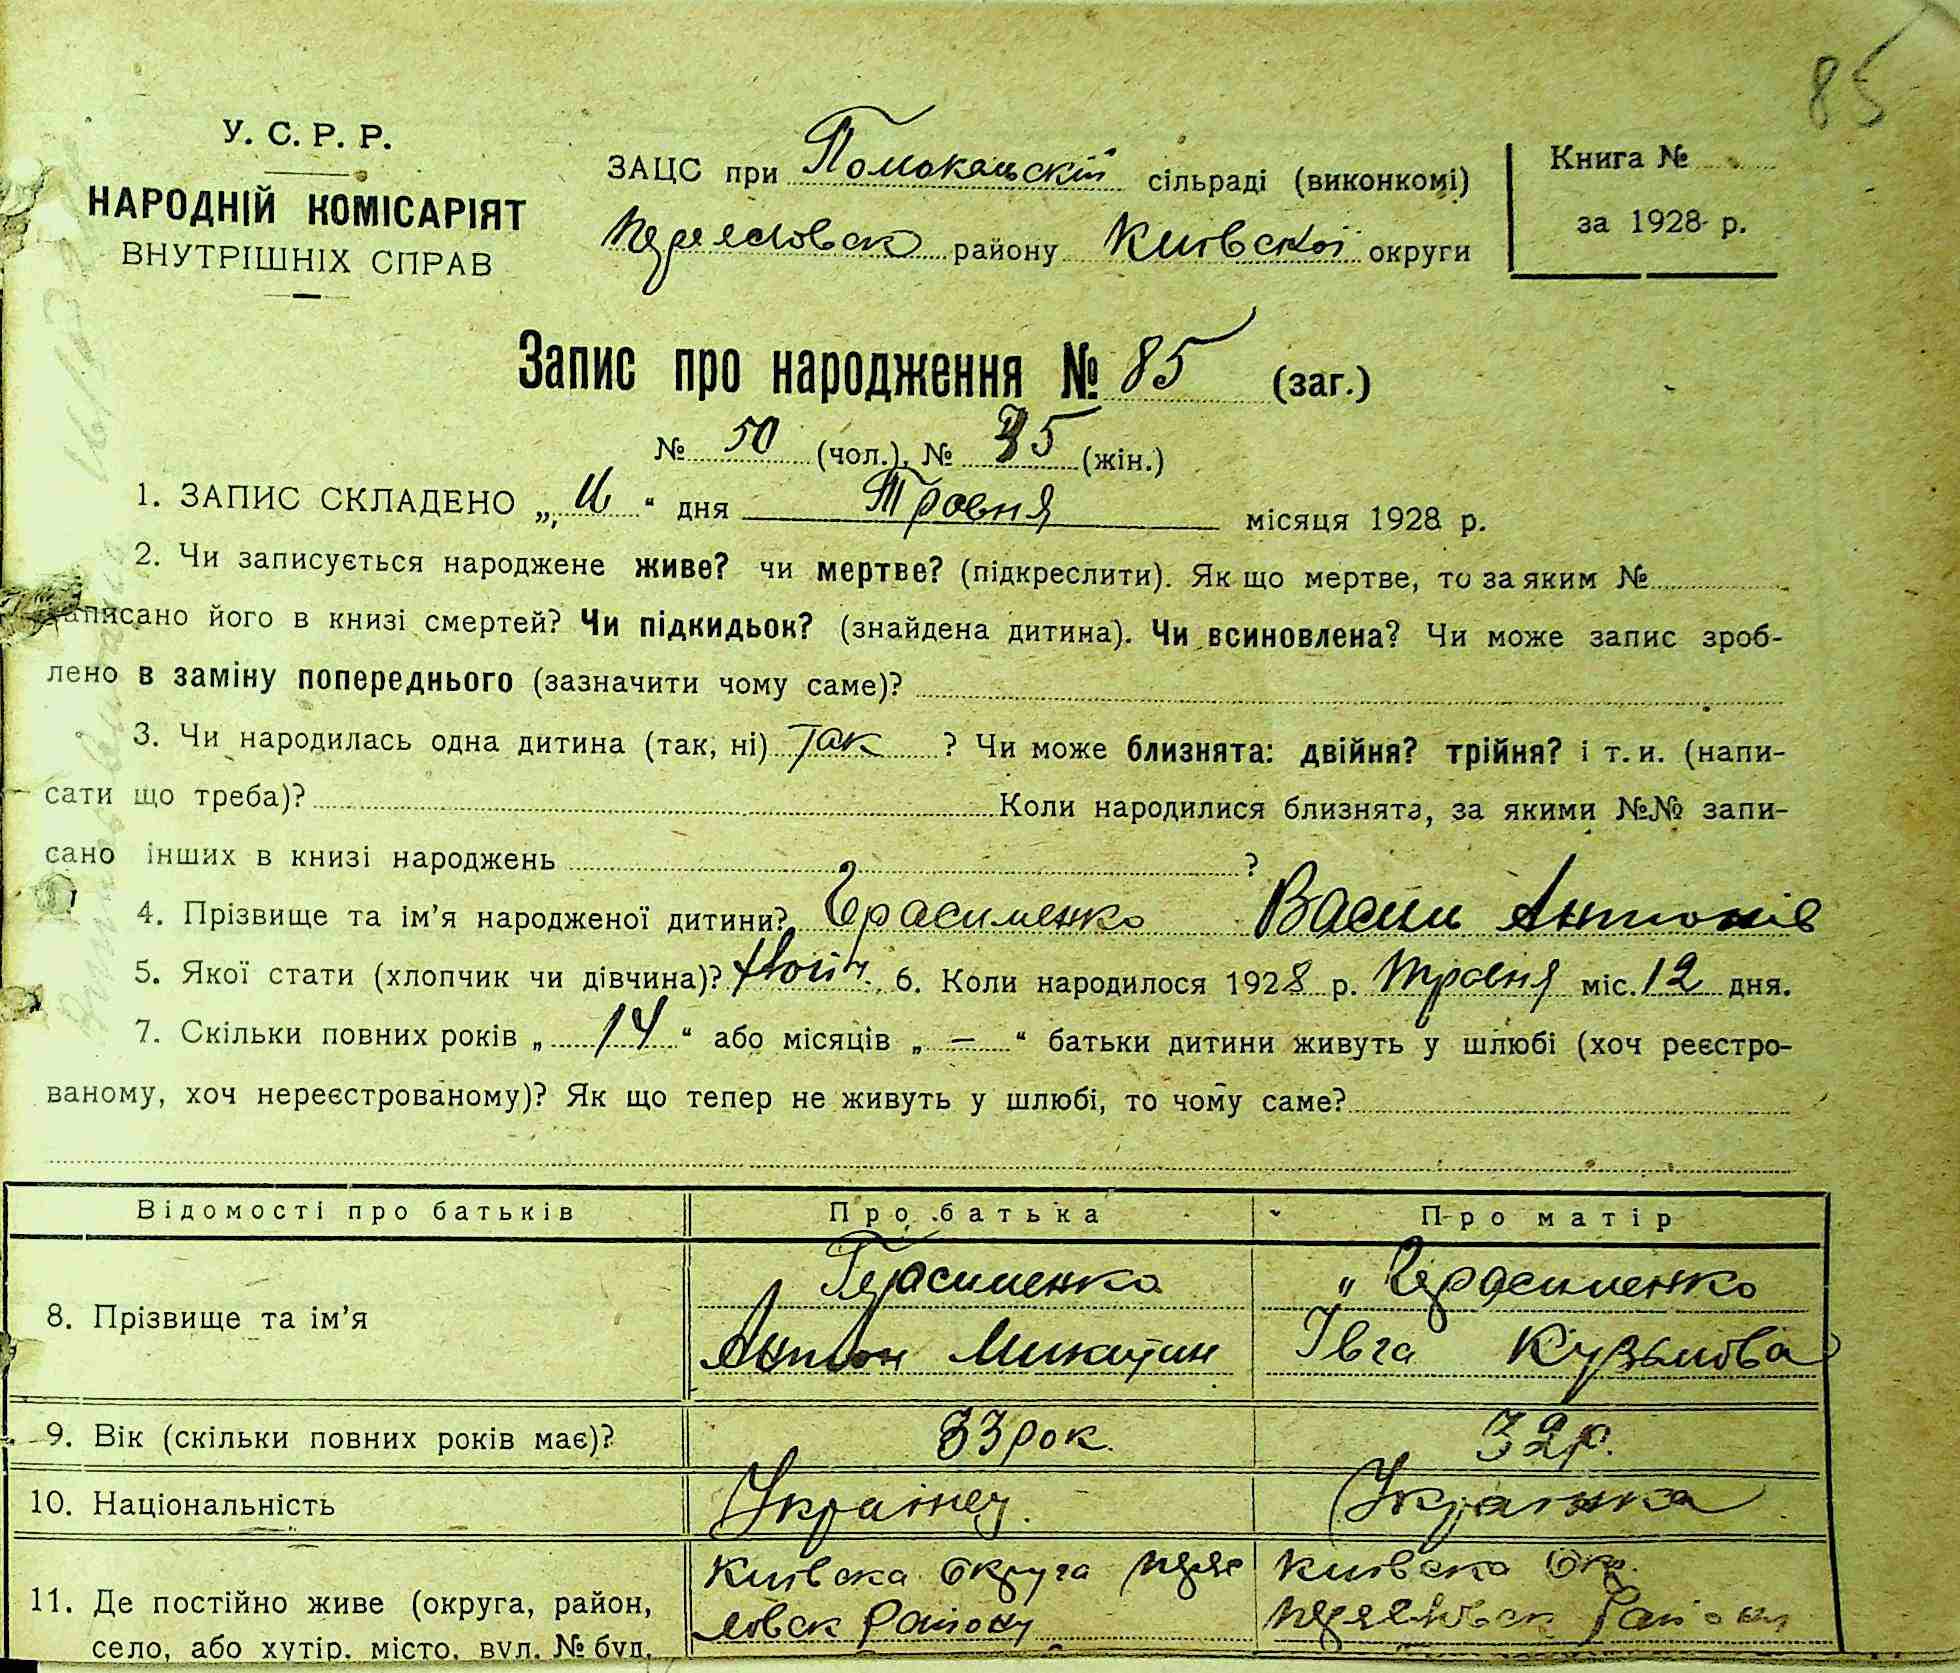 85
У. С. Р. Р.
НАРОДНІЙ КОМІСАРІЯТ
ВНУТРІШНІХ СПРАВ
ЗАЦС при Помокальскій сільраді (виконкомі)
Переясловск району Київскої округи
Книга №
за 1928 р.
Запис про народження № 85 (заг.)
№ 50 (чол.), № 35 (жін.)
1. ЗАПИС СКЛАДЕНО „ “ дня Травня місяця 1928 р.
2. Чи записується народжене живе? чи мертве? (підкреслити). Як що мертве, то за яким №
записано його в книзі смертей? Чи підкидьок? (знайдена дитина). Чи всиновлена? Чи може запис зроб-
лено в заміну попереднього (зазначити чому саме)?
3. Чи народилась одна дитина (так, ні) так ? Чи може близнята: двійня? трійня? і т. и. (напи-
сати що треба)? Коли народилися близнята, за якими №№ запи-
сано інших в книзі народжень ?
4. Прізвище та ім’я народженої дитини? Герасименко Василь Антонів
5. Якої стати (хлопчик чи дівчина)? 6. Коли народилося 1928 р. Травня міс. 12 дня.
7. Скільки повних років „ 14 “ або місяців „ — “ батьки дитини живуть у шлюбі (хоч реєстро-
ваному, хоч нереєстрованому)? Як що тепер не живуть у шлюбі, то чому саме?
Відомості про батьків Про батька Про матір
8. Прізвище та ім’я
Герасименко
Антон Микитин
„ Герасименко
Івга Кузьмова
9. Вік (скільки повних років має)? 33 рок. 32 р.
10. Національність Українец. Українка
11. Де постійно живе (округа, район,
село, або хутір, місто, вул. № буд.
Київска Округа Перея
словск Району
Київска Окр.
Переясловск Району